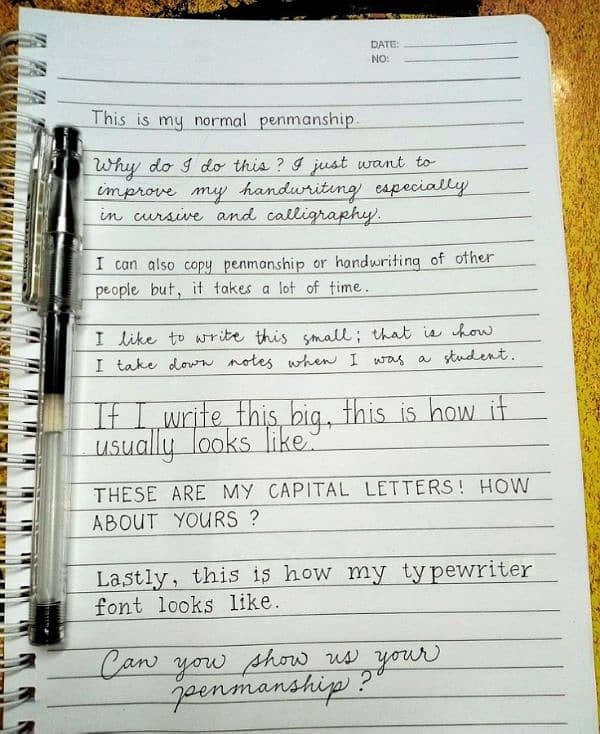 DATE:
NO:
This is my normal penmanship.
Why do I do this? I just want to
improve my handwriting especially
in cursive and calligraphy.
I can also copy penmanship or handwriting of other
people but, it takes a lot of time.
I like to write this small; that is how
I take down notes when I was a student.
If I write this big, this is how it
usually looks like.
THESE ARE MY CAPITAL LETTERS! HOW
ABOUT YOURS ?
Lastly, this is how my typewriter
font looks like.
Can you show us your
penmanship?